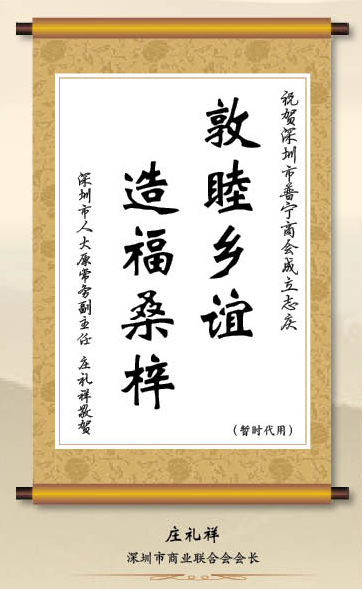 祝贺深圳市普宁商会成立志庆
敦睦乡谊
造福桑梓
深圳市人大原常务副主任 庄礼祥敬贺
（暂时代用）
庄礼祥
深圳市商业联合会会长